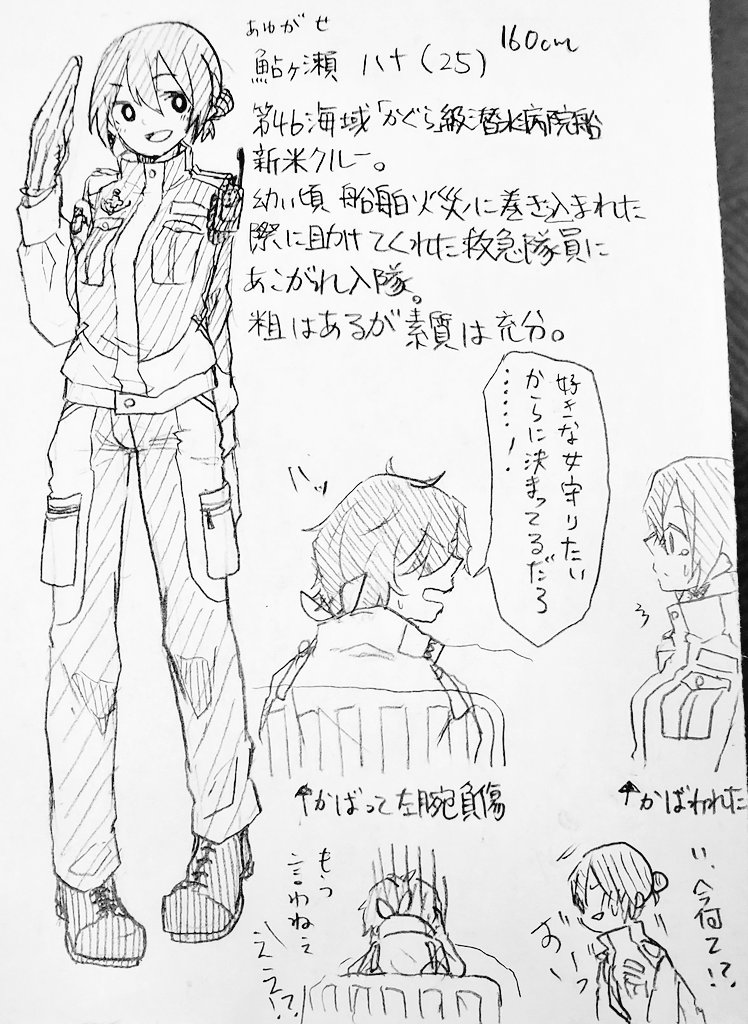 あゆがせ
鮎ヶ瀬 ハナ(25) 160cm
第46海域「かぐら」級潜水病院船
新米クルー。
幼い頃 船舶火災に巻き込まれた
際に助けてくれた救急隊員に
あこがれ入隊。
粗はあるが素質は充分。
好きな女守りたい
からに決まってるだろ
……！
ハッ
↑かばって左腕負傷
↑かばわれた
もう
言わねぇ
ええ!?
い、今何て!?